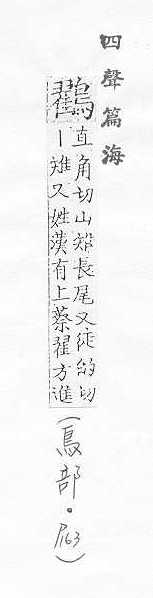 四聲篇海
鸐直角切山雉長尾又徒的切
丨雉又姓漢有上蔡翟方進
(鳥部・P163)